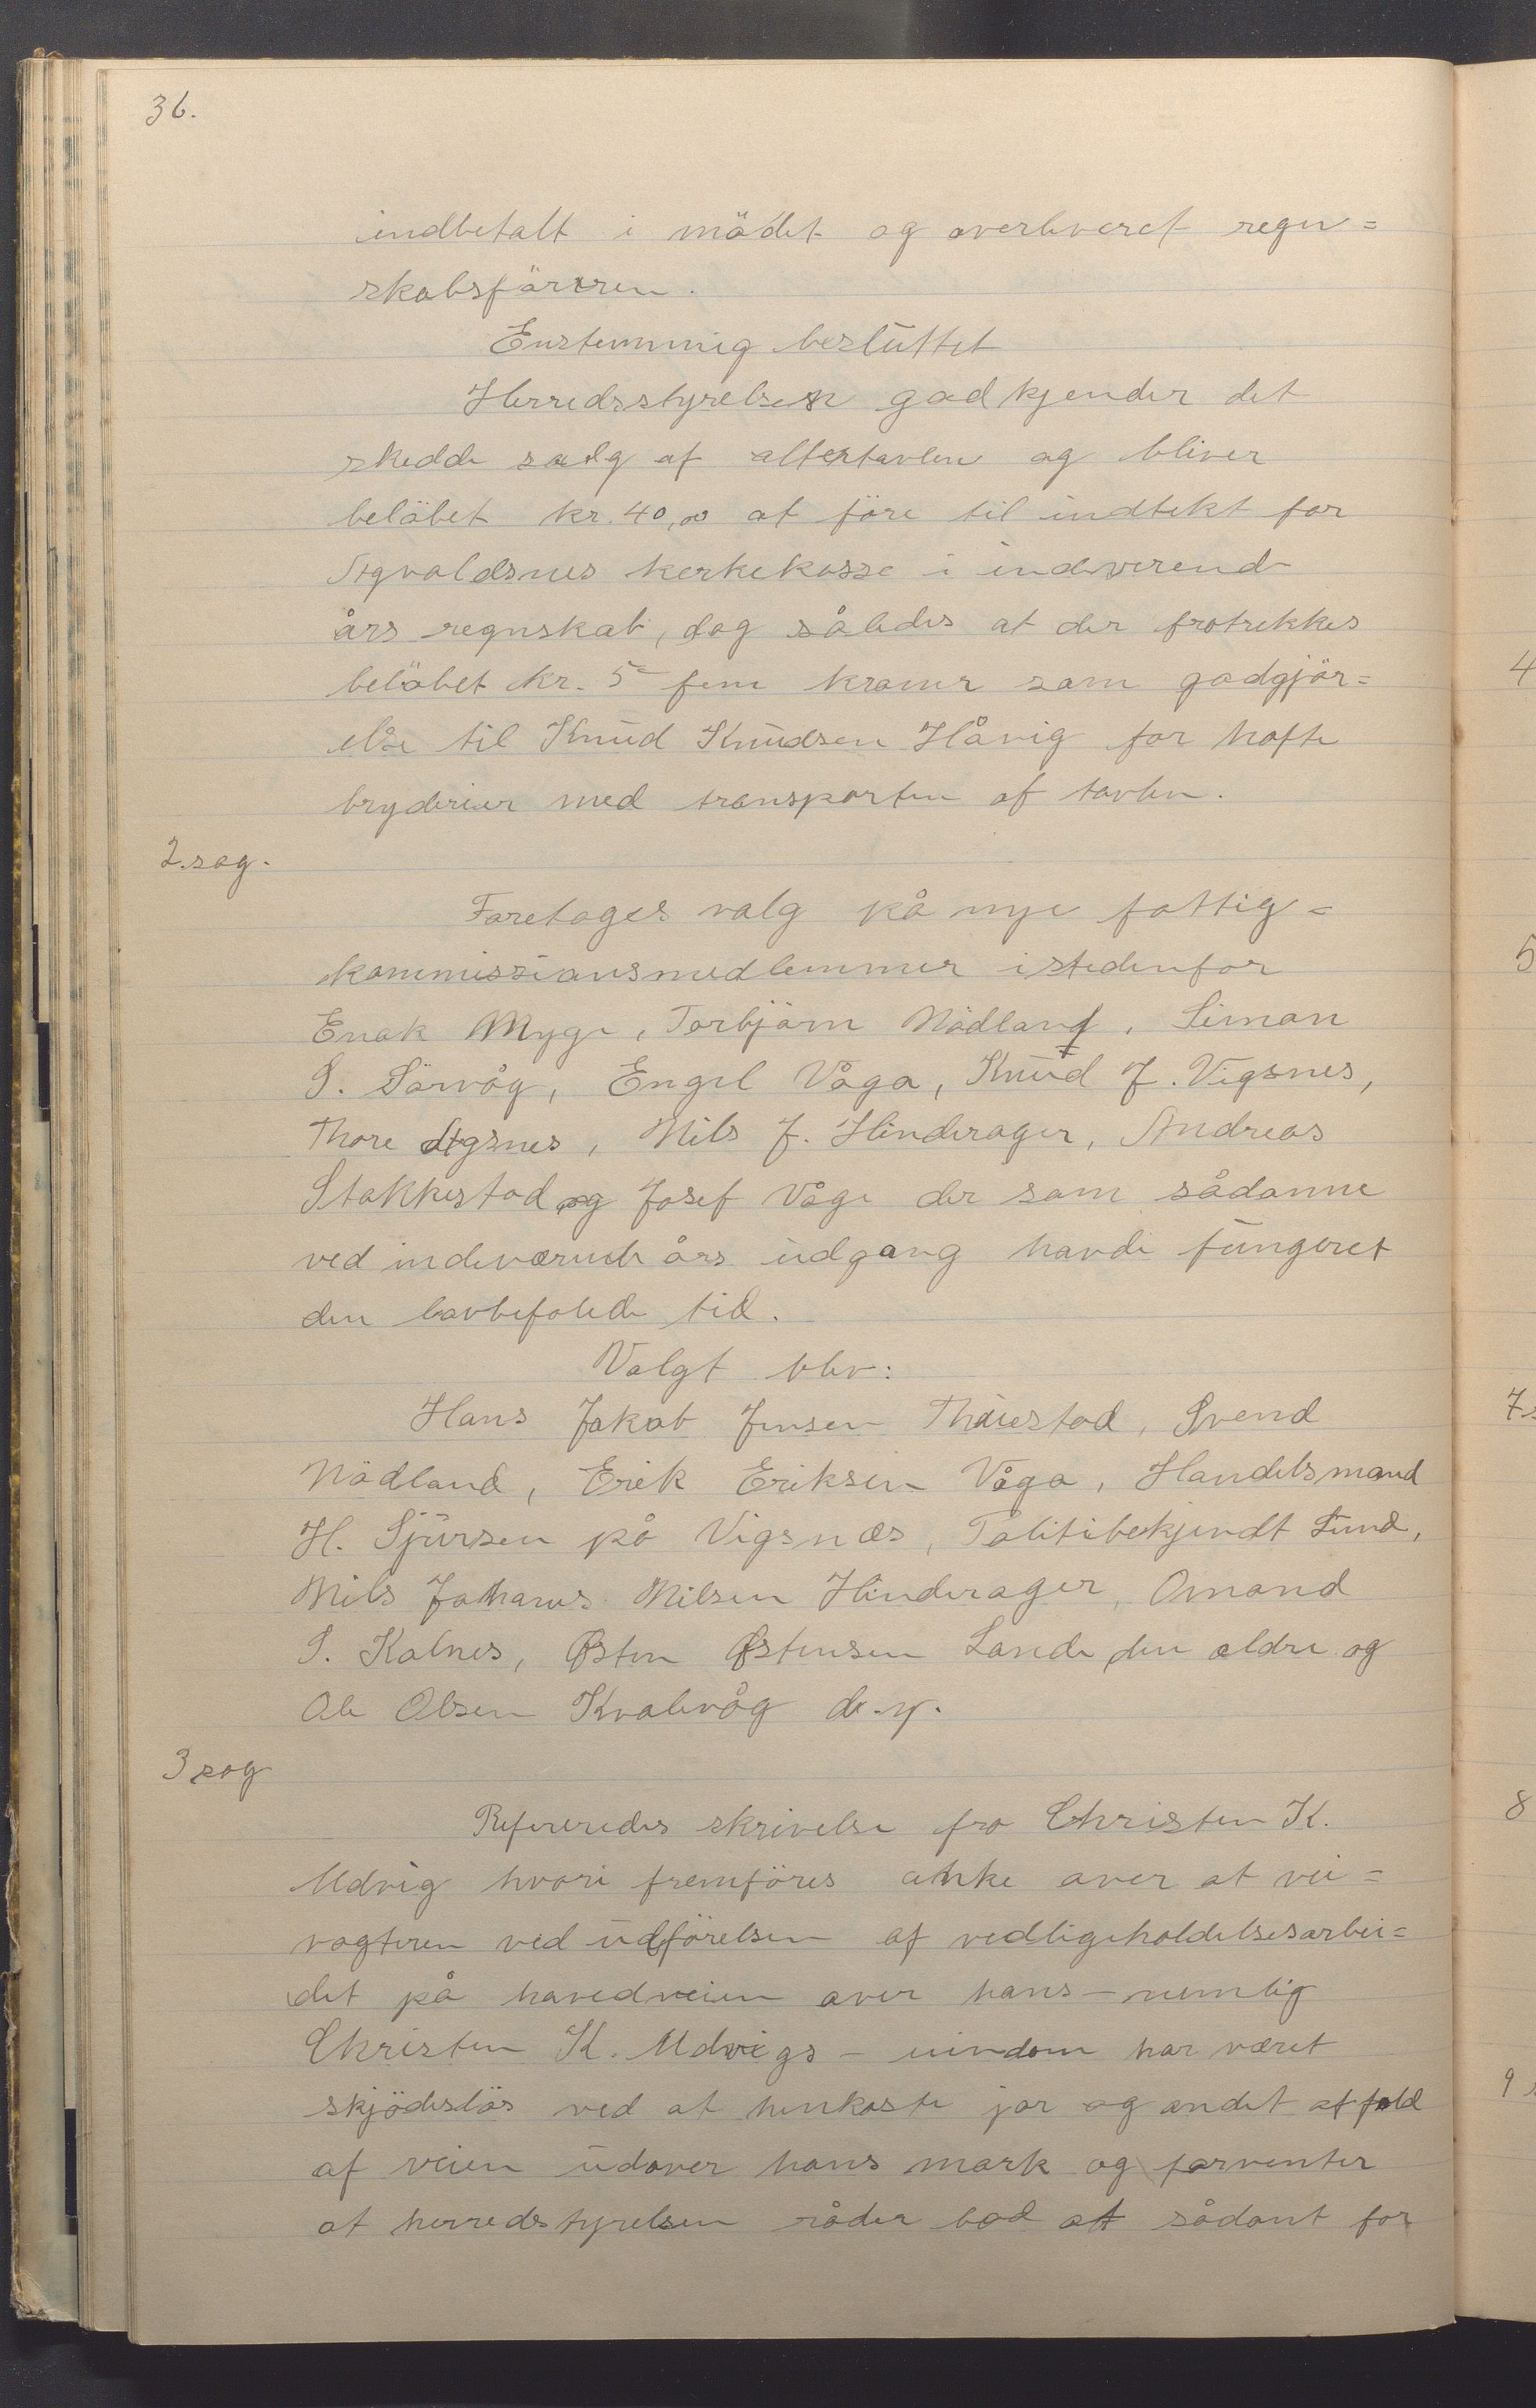 36.
indbetalt i mödet og overleveret regn=
skabsföreren.
Enstemmig besluttet
Herredsstyrelsen godkjender det
skedde salg af altertavlen og bliver
belöbet kr. 40,00 at före til indtekt for
Agvaldsnes kerkekasse i indeverende
års regnskab, dog således at der fratrekkes
belöbet kr. 5- fem kroner som godgjör=
else til Knud Knudsen Håvig for hafte
bryderier med transporten af tavlen.
2. sag.
Foretoges valg på nye fattig=
kommissionsmedlemmer istedenfor
Enok Myge, Torbjörn Nödland, Siman
S. Sörvåg, Engel Våga, Knud J. Vigsnes,
Thore Agsnes, Nils J. Hinderager, Andreas
Stakkestad og Josef Våge der som sådanne
ved indeværende års udgang havde fungeret
den lovbefalede tid.
Valgt blev:
Hans Jakob Jensen Thoiestad, Svend
Nödland, Erik Eriksen Våga, Handelsmand
H. Sjursen på Vigsnæs, Politibetjendt Lund,
Nils Johanes Nilsen Hinderager, Omand
S. Kalnes, Østen Østensen Lande den eldre og
Ole Olsen Kvalevåg d. y.
3 sag
Refereredes skrivelse fra Christen K.
Udvig hvori fremföres anke over at vei=
vogteren ved udförelsen af vedligeholdelsesarbei=
det på hovedveien over hans - nemlig
Christen K. Udvigs - eiendom har været
skjödeslös ved at henkaste jor og andet affald
af veien udover hans mark og forventer
at herredstyrelsen råder bod at sådant for
4
5
7 s
8
9 s